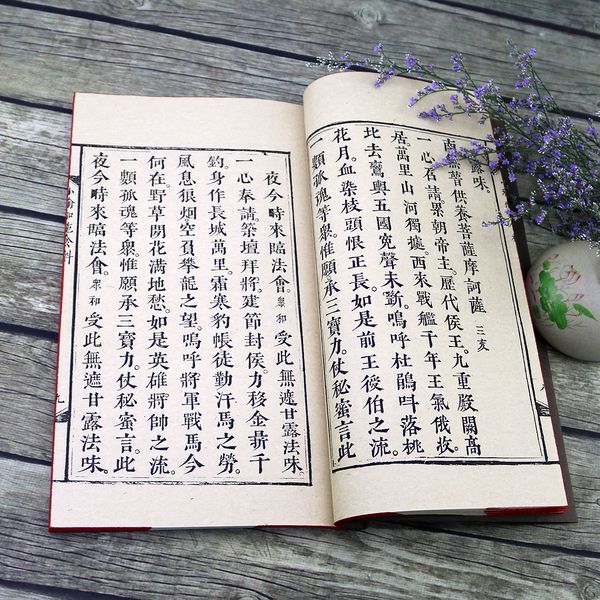 露味。
南無普供養菩薩摩訶薩 三
一心奉請累朝帝主。歷代侯王。九重殿闕高
居。萬里山河獨據。西來戰艦千年王氣俄收。
北去鸞輿五國冤聲未斷。嗚呼杜鵑呌落桃
花月。血染枝頭恨正長。如是前王後伯之流。
一類孤魂等衆。惟願承三寶力。仗秘蜜言。此
夜今時來臨法會。衆和 受此無遮甘露法味。
一心奉請築壇拜將建節封侯。力移金鼎千
鈞。身作長城萬里。霜寒豹帳徒勤汗馬之勞。
風息狼烟空負攀龍之望。嗚呼將軍戰馬今
何在野草閒花滿地愁。如是英雄將帥之流。
一類孤魂等衆。惟願承三寶力。仗秘蜜言。此
夜今時來臨法會。衆和 受此無遮甘露法味。